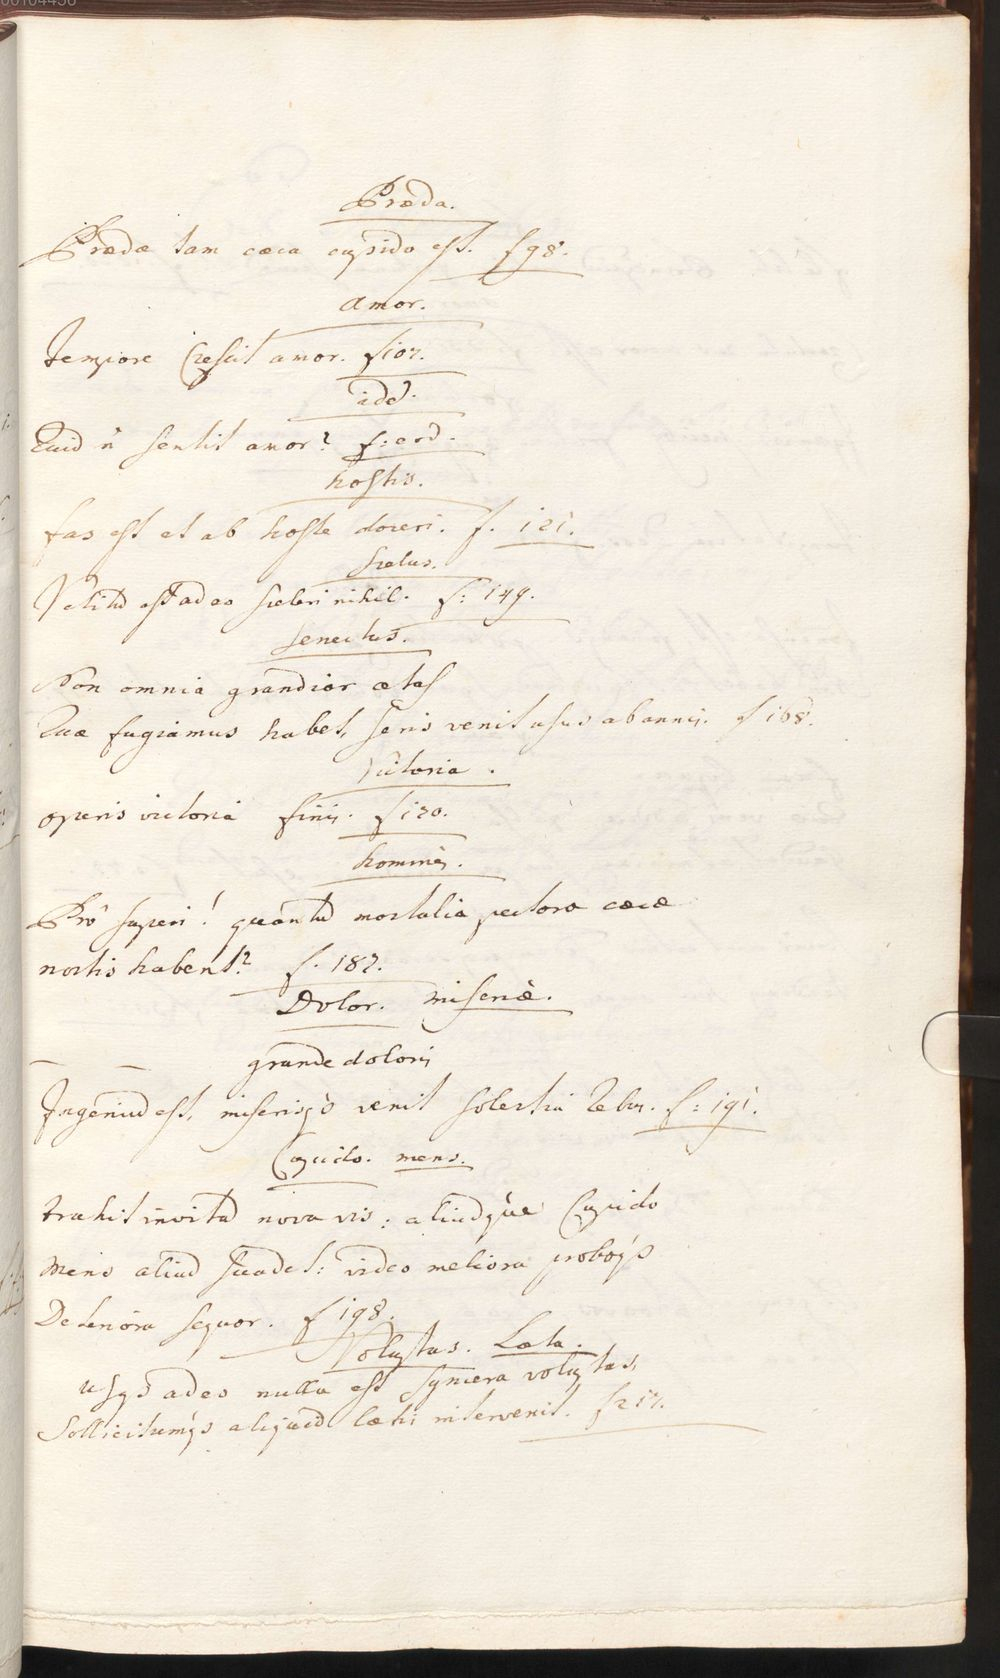 Præda.
Prædæ tam cæca cupido est. f 98.
Amor.
Tempore Crescit amor. f 107.
idẽ.
Quid ñ sentit amor? f: eod.
hostis.
fas est et ab hoste doceri. f. 121.
scelus.
Vetitũ est adeo sceleri nihil. f: 149.
senectus.
Non omnia grandior ætas
Quæ fugiamus habet, seris venit usus ab annis. f 168.
Victoria.
operis victoria finis. f 170.
homines.
Pro superi! quantũ mortalia pectora cæcæ
noctis habent? f. 187.
Dolor. miseriæ.
grande doloris
Ingeniũ est, miserisq̃ venit solertia rebus. f: 191.
Cupido. mens.
trahit invitã nova vis: aliudque Cupido
Mens aliud suadet: video meliora proboq̃
Deteriora sequor. f 198.
Voluptas. Læta.
usq̃ adeo nulla est syncera voluptas,
Sollicitumq̃ aliquid lætis intervenit. f 217.